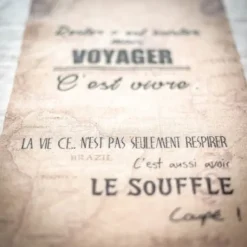 Rester c'est exister
mais
VOYAGER
C'est vivre.
LA VIE CE.. N'EST PAS SEULEMENT RESPIRER
BRAZIL
C'est aussi avoir
LE SOUFFLE
Coupé !